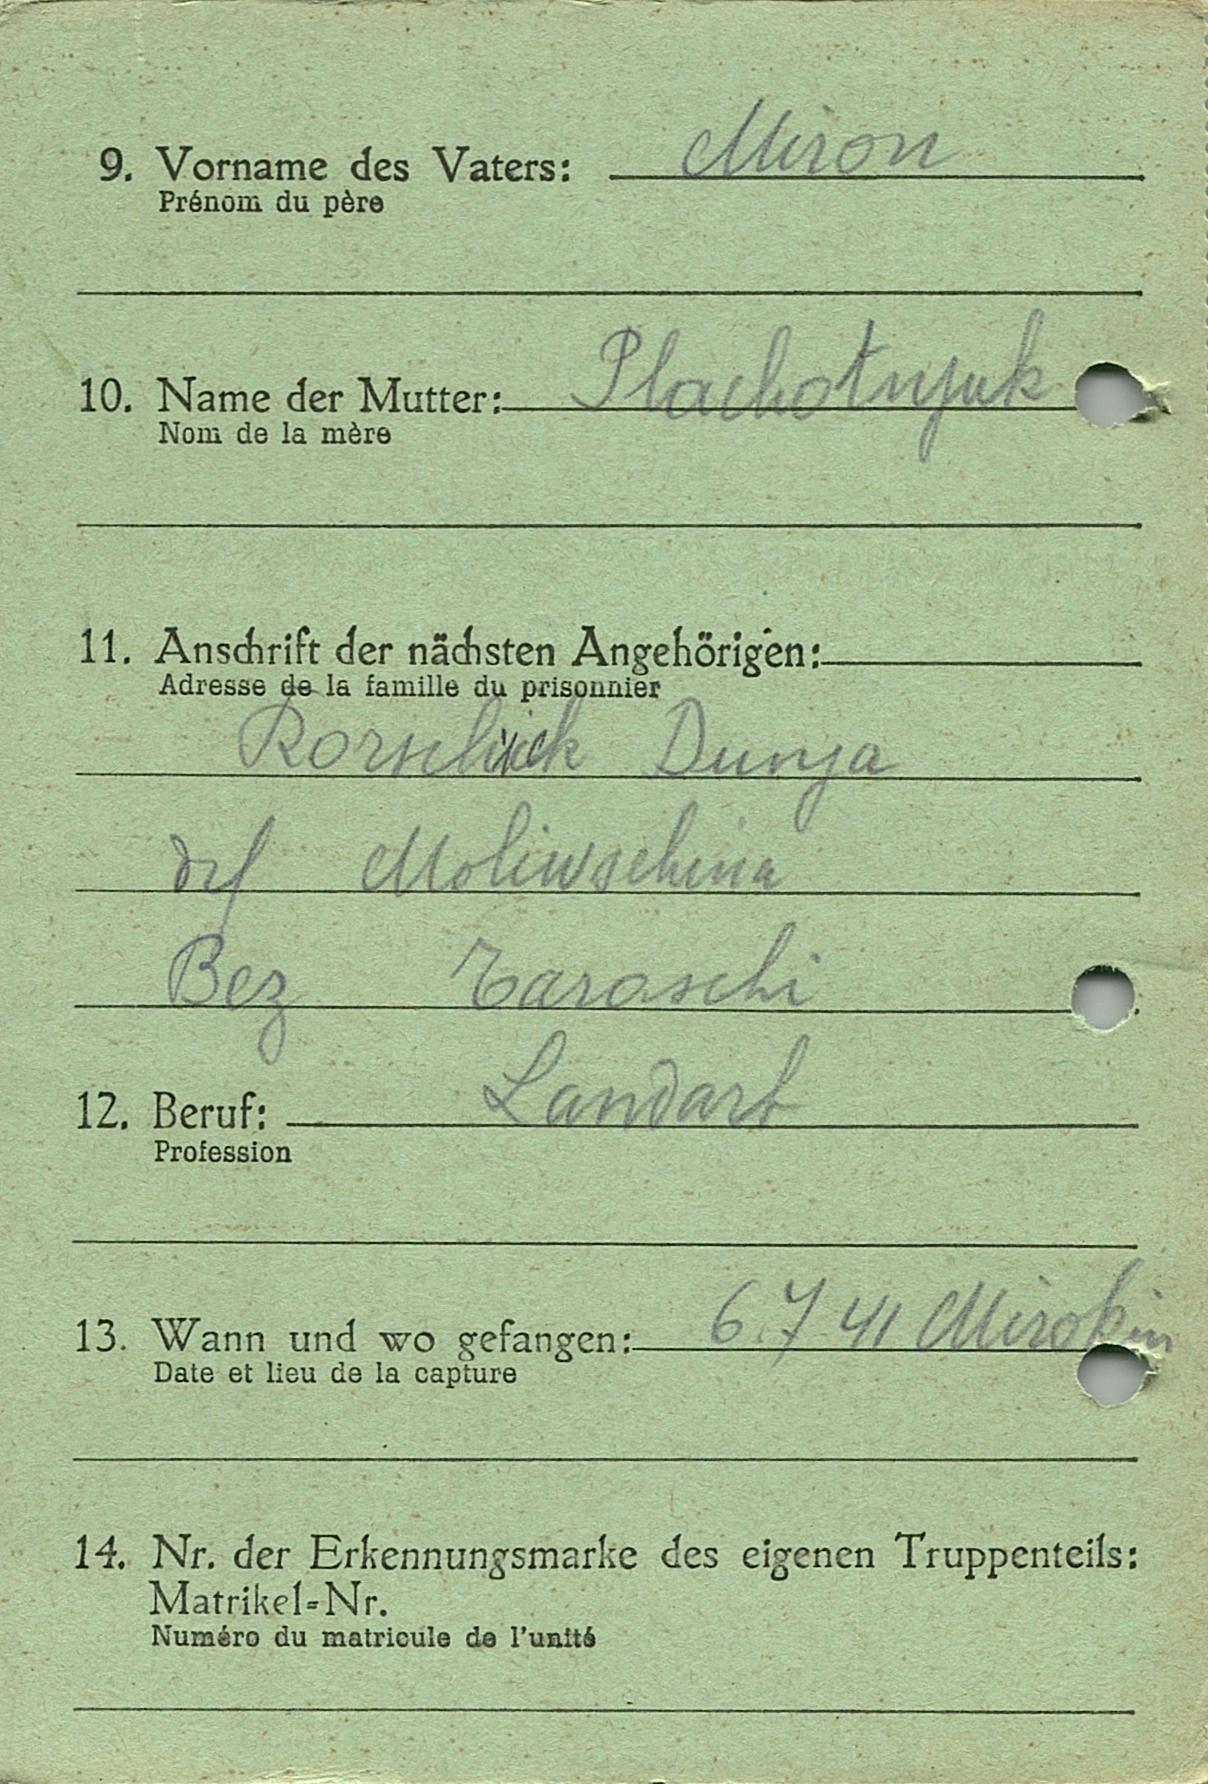 9. Vorname des Vaters: Miron
Prénom du père
10. Name der Mutter: Plachotnjuk
Nom de la mère
11. Anschrift der nächsten Angehörigen:
Adresse de la famille du prisonnier
Dunja
Moliwschina
Bez Taraschi
12. Beruf: Landarb
Profession
13. Wann und wo gefangen: 6.7 41 Miropin
Date et lieu de la capture
14. Nr. der Erkennungsmarke des eigenen Truppenteils:
Matrikel=Nr.
Numéro du matricule de l'unité